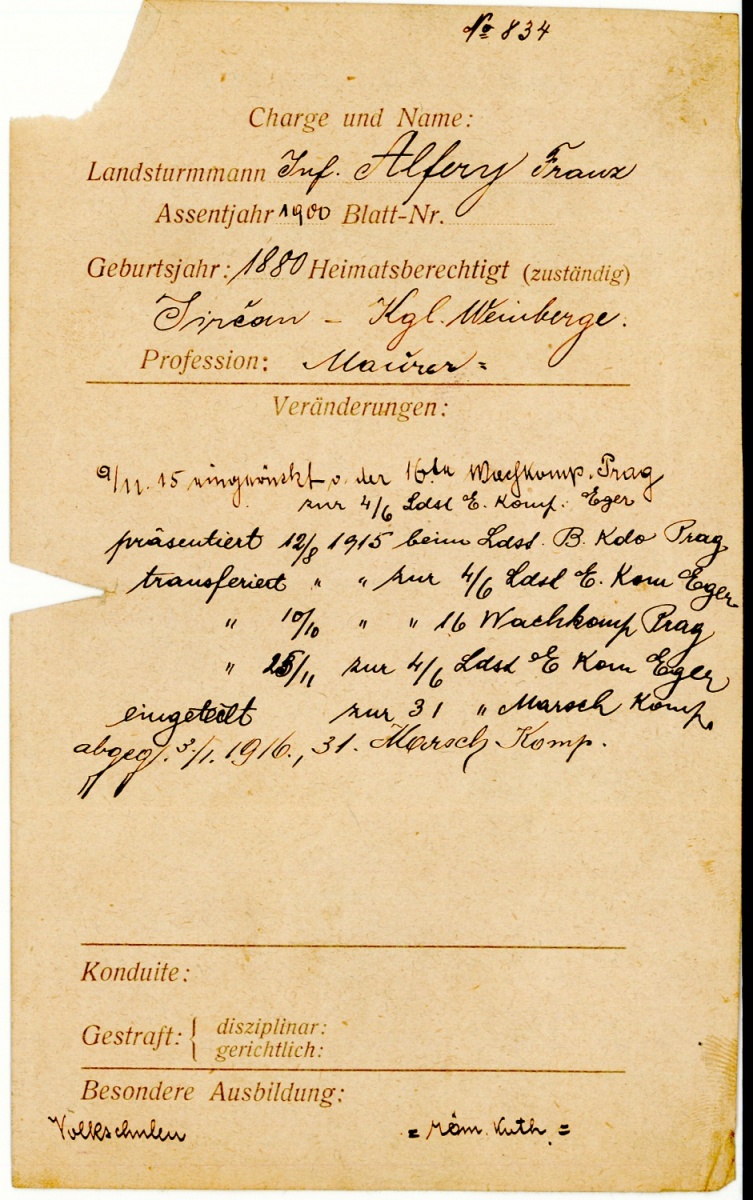 No 834
Charge und Name:
Landsturmmann Inf. Alfery Franz
Assentjahr 1900 Blatt-Nr.
Geburtsjahr: 1880 Heimatsberechtigt (zuständig)
Jirčan – Kgl. Weinberge.
Profession: Maurer =
Veränderungen:
9/11. 15 eingerückt v. der 16te Wachkomp. Prag
zur 4/6 Ldst E. Komp. Eger
präsentiert 12/8 1915 beim Ldst. B. Kdo Prag
transferiert " " zur 4/6 Ldst E. Kom Eger
" 10/10 " " 16 Wachkomp Prag
" 25/11 zur 4/6 Ldst E Kom Eger
eingeteilt zur 31 " Marsch Komp.
abgeg. 3./1. 1916., 31. Marsch Komp.
Konduite:
Gestraft: { disziplinar:
gerichtlich:
Besondere Ausbildung:
Volkschulen = röm. kath. =